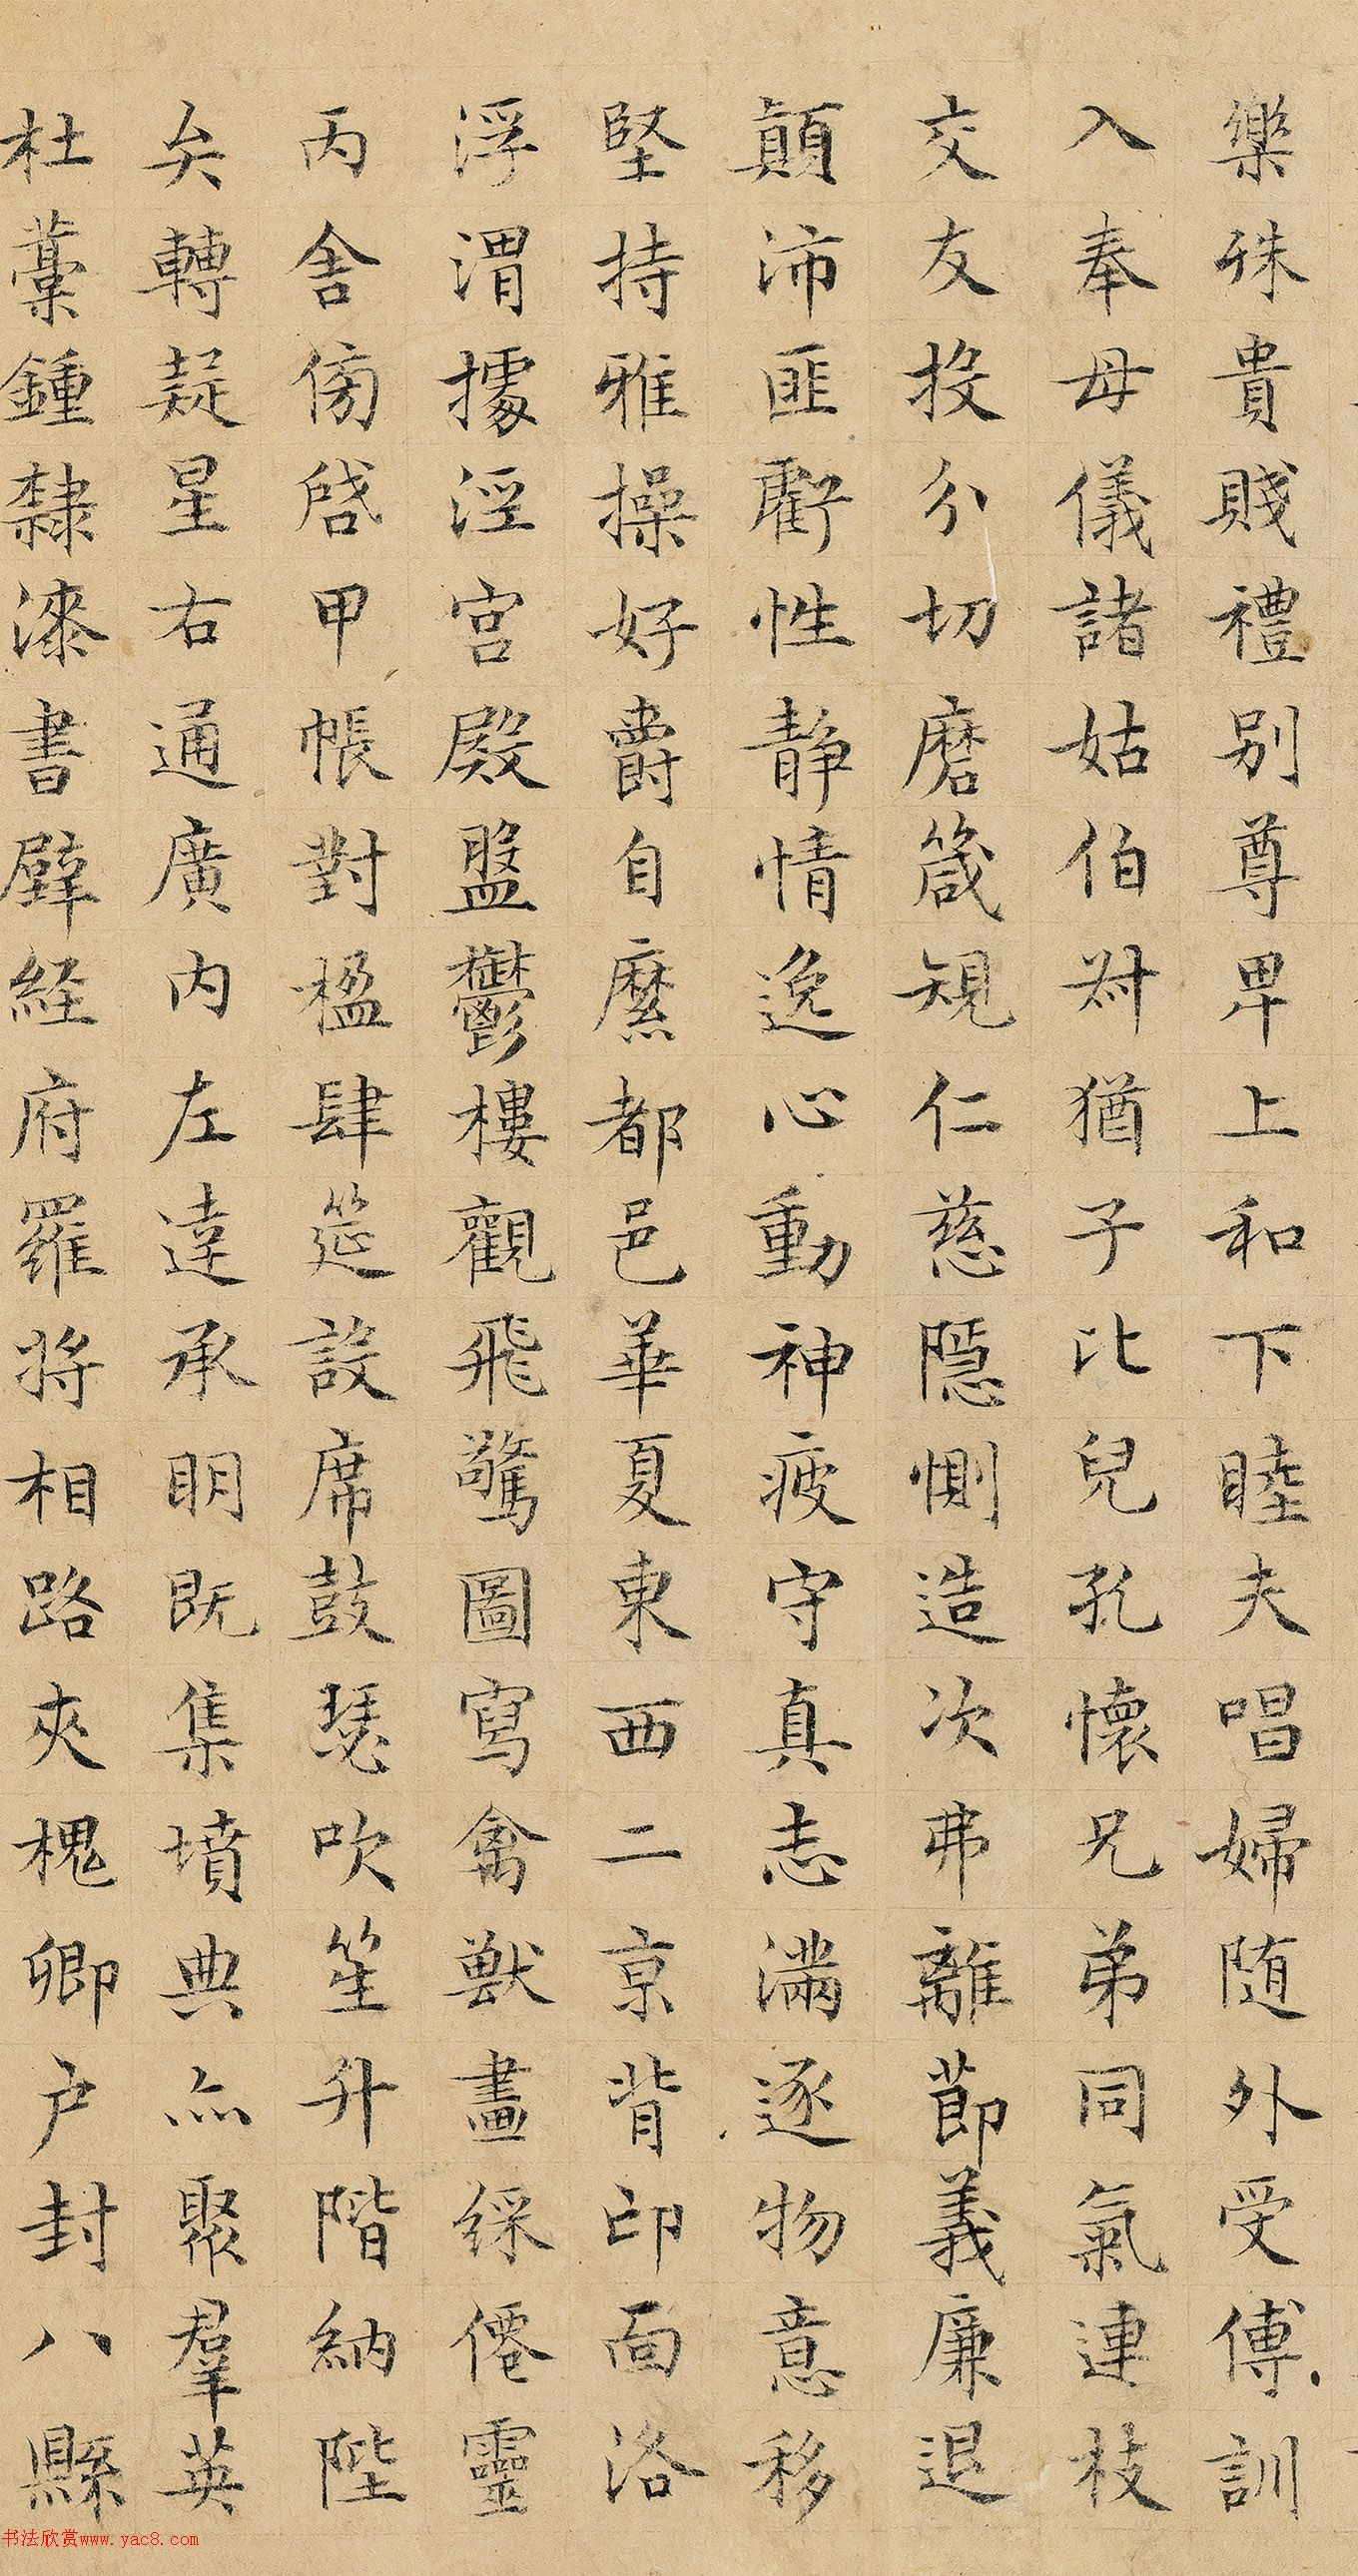 樂殊貴賤禮别尊卑上和下睦夫唱婦随外受傅訓
入奉母儀諸姑伯叔猶子比兒孔懷兄弟同氣連枝
交友投分切磨箴規仁慈隱惻造次弗離節義廉退
顛沛匪虧性静情逸心動神疲守真志滿逐物意移
堅持雅操好爵自縻都邑華夏東西二京背邙面洛
浮渭據涇宮殿盤鬱樓觀飛驚圖寫禽獸畫綵僊靈
丙舍傍啓甲帳對楹肆筵設席鼓瑟吹笙升階納陛
弁轉疑星右通廣内左達承明既集墳典亦聚羣英
杜藁鍾隸漆書壁經府羅將相路夾槐卿户封八縣
书法欣赏www.yac8.com